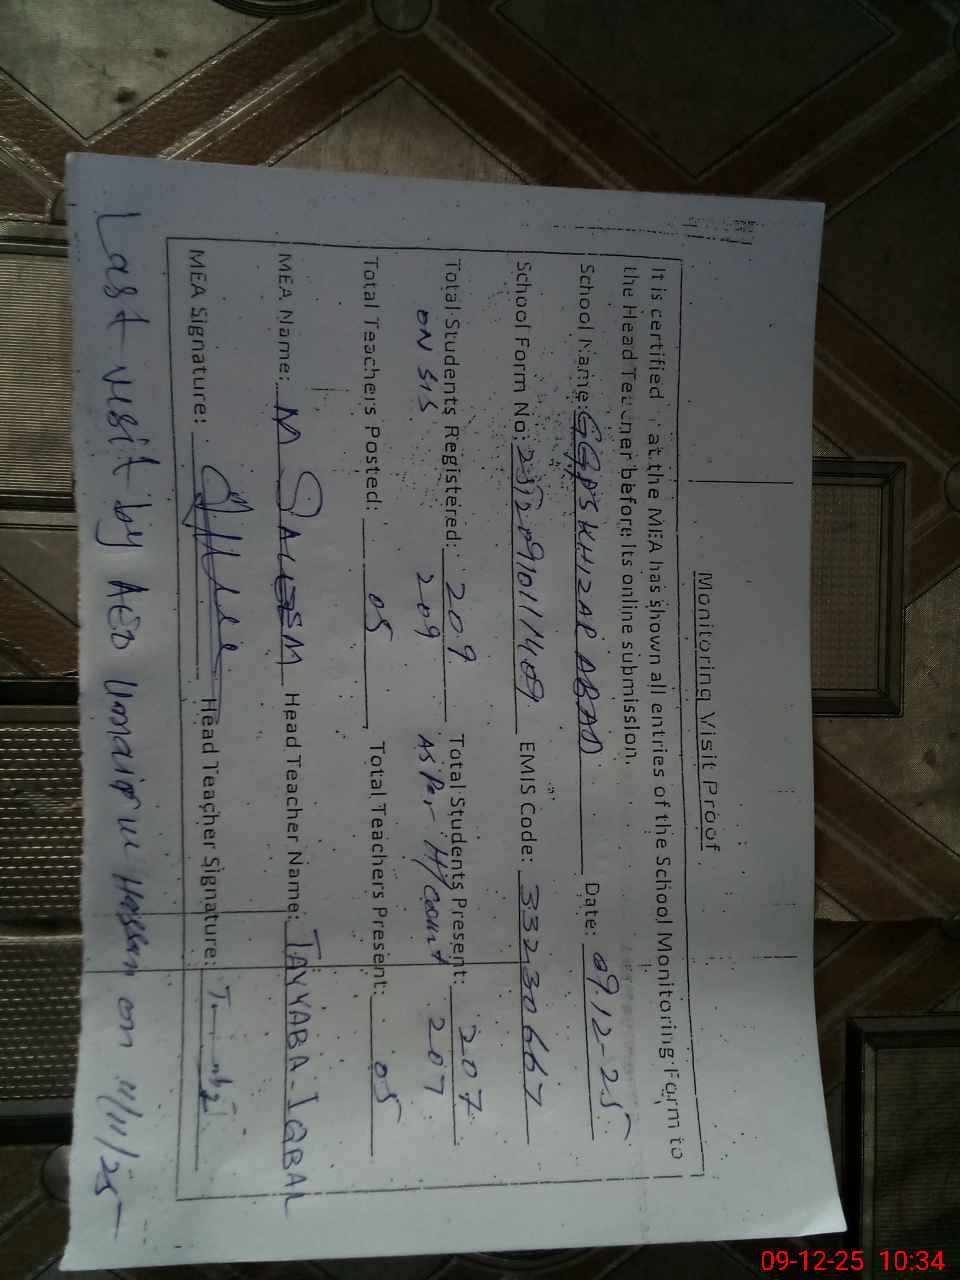 Monitoring Visit Proof
It is certified at the MEA has shown all entries of the School Monitoring Form to
the Head Teacher before its online submission.
School Name: GGPS KHIZAR ABAD Date: 09.12-25
School Form No: EMIS Code: 33230667
Total Students Registered: 209 Total Students Present: 207
ON SIS 209 AS Per H/Count 207
Total Teachers Posted: 05 Total Teachers Present: 05
MEA Name: M SALEEM Head Teacher Name: TAYYABA-IQBAL
MEA Signature: Head Teacher Signature:
Last visit by AEO Hassan on 11/11/25
09-12-25 10:34